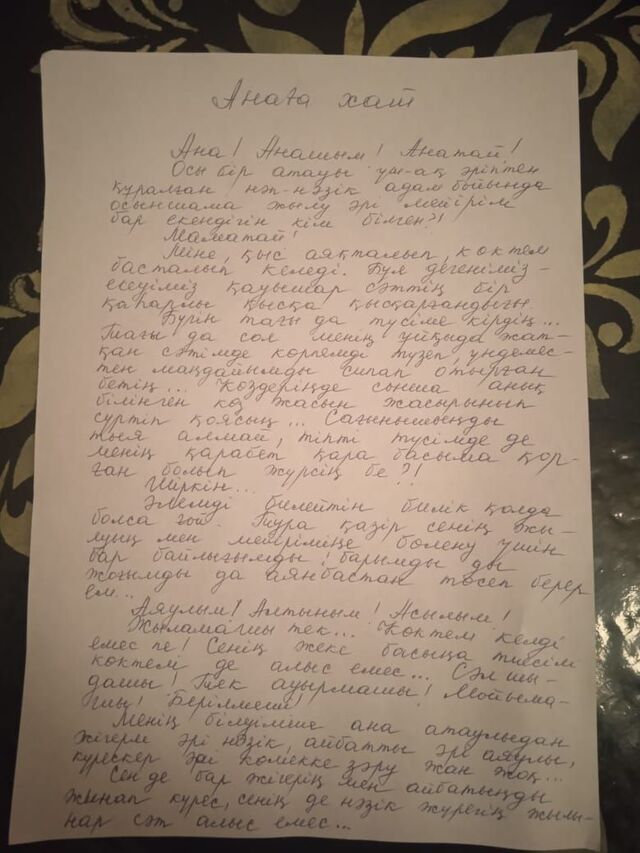 Анаға хат
Ана! Анашым! Анатай!
Осы бір атауы үш-ақ әріптен
құралған нәп-нәзік адам бойында
осыншама жылу әрі мейірім
бар екендігін кім білген?!
Маматай!
Міне, қыс аяқталып, көктем
басталып келеді. Бұл дегеніміз -
екеуіміз қауышар сәттің бір
қаһарлы қысқа қысқарғандығы.
Бүгін тағы да түсіме кірдің...
Тағы да сол менің ұйқыда жат-
қан сәтімде көрпемді түзеп, үндемес-
тен маңдайымды сипап отырған
бетің... Көздеріңде сонша анық
білінген көз жасын жасырынып
сүртіп қоясың... Сағынышыңды
тыя алмай, тіпті түсімде де
менің қарабет қара басыма қор-
ған болып жүрсің бе?!
Шіркін...
Әлемді билейтін билік қолда
болса ғой. Тура қазір сенің жы-
луың мен мейіріміңе бөлену үшін
бар байлығымды, барымды ды
жоғымды да аянбастан төсеп берер
ем...
Аяулым! Алтыным! Асылым!
Жыламашы тек... Көктем келді
емес пе! Сенің жеке басыңа тиесілі
көктемі де алыс емес... Сәл шы-
дашы! Тек ауырмашы! Мойыма-
шы! Берілмеші!
Менің білуімше ана атаулыдан
жігерлі әрі нәзік, айбатты әрі аяулы,
күрескер әрі көмекке зәру жан жоқ...
Сен де бар жігерің мен айбатыңды
жинап күрес, сенің де нәзік жүрегің жылы-
нар сәт алыс емес...